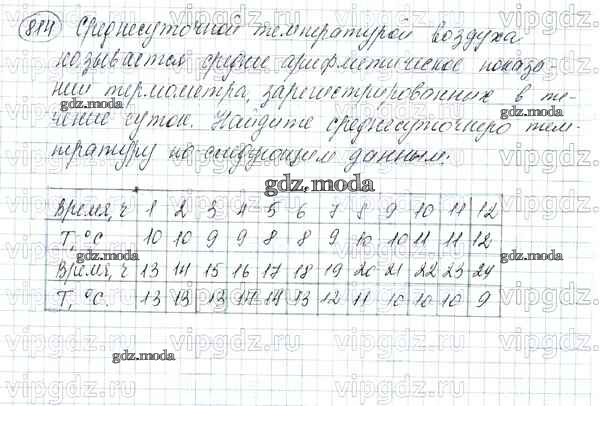 814 Среднесуточной температурой воздуха
называется среднее арифметическое показа-
ний термометра, зарегистрированных в те-
чение суток. Найдите среднесуточную тем-
пературу по следующим данным:
gdz.moda
Время, ч 1 2 3 4 5 6 7 8 9 10 11 12
T, °C 10 10 9 9 8 8 9 10 10 11 11 12
Время, ч 13 14 15 16 17 18 19 20 21 22 23 24
T, °C. 13 13 13 14 14 13 12 11 10 10 10 9
gdz.moda